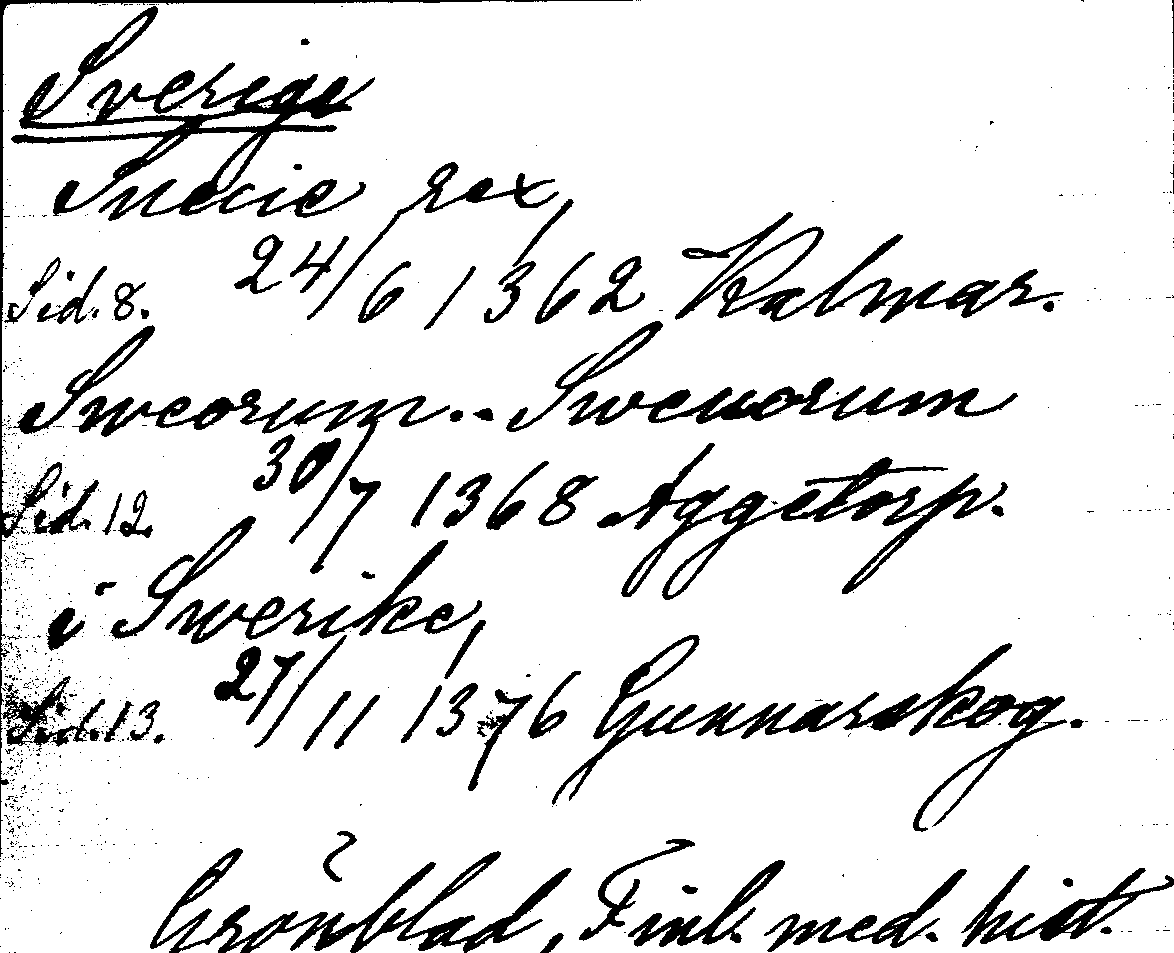 Sverige
Suecie rex,
Sid. 8. 24/6 1362 Kalmar.
Sweorum.. Swenorum
Sid. 12. 30/7 1368 Aggetorp.
i Swerike,
Sid. 13. 27/11 1376 Gunnarskog.
Grönblad, Finl. med. hist.